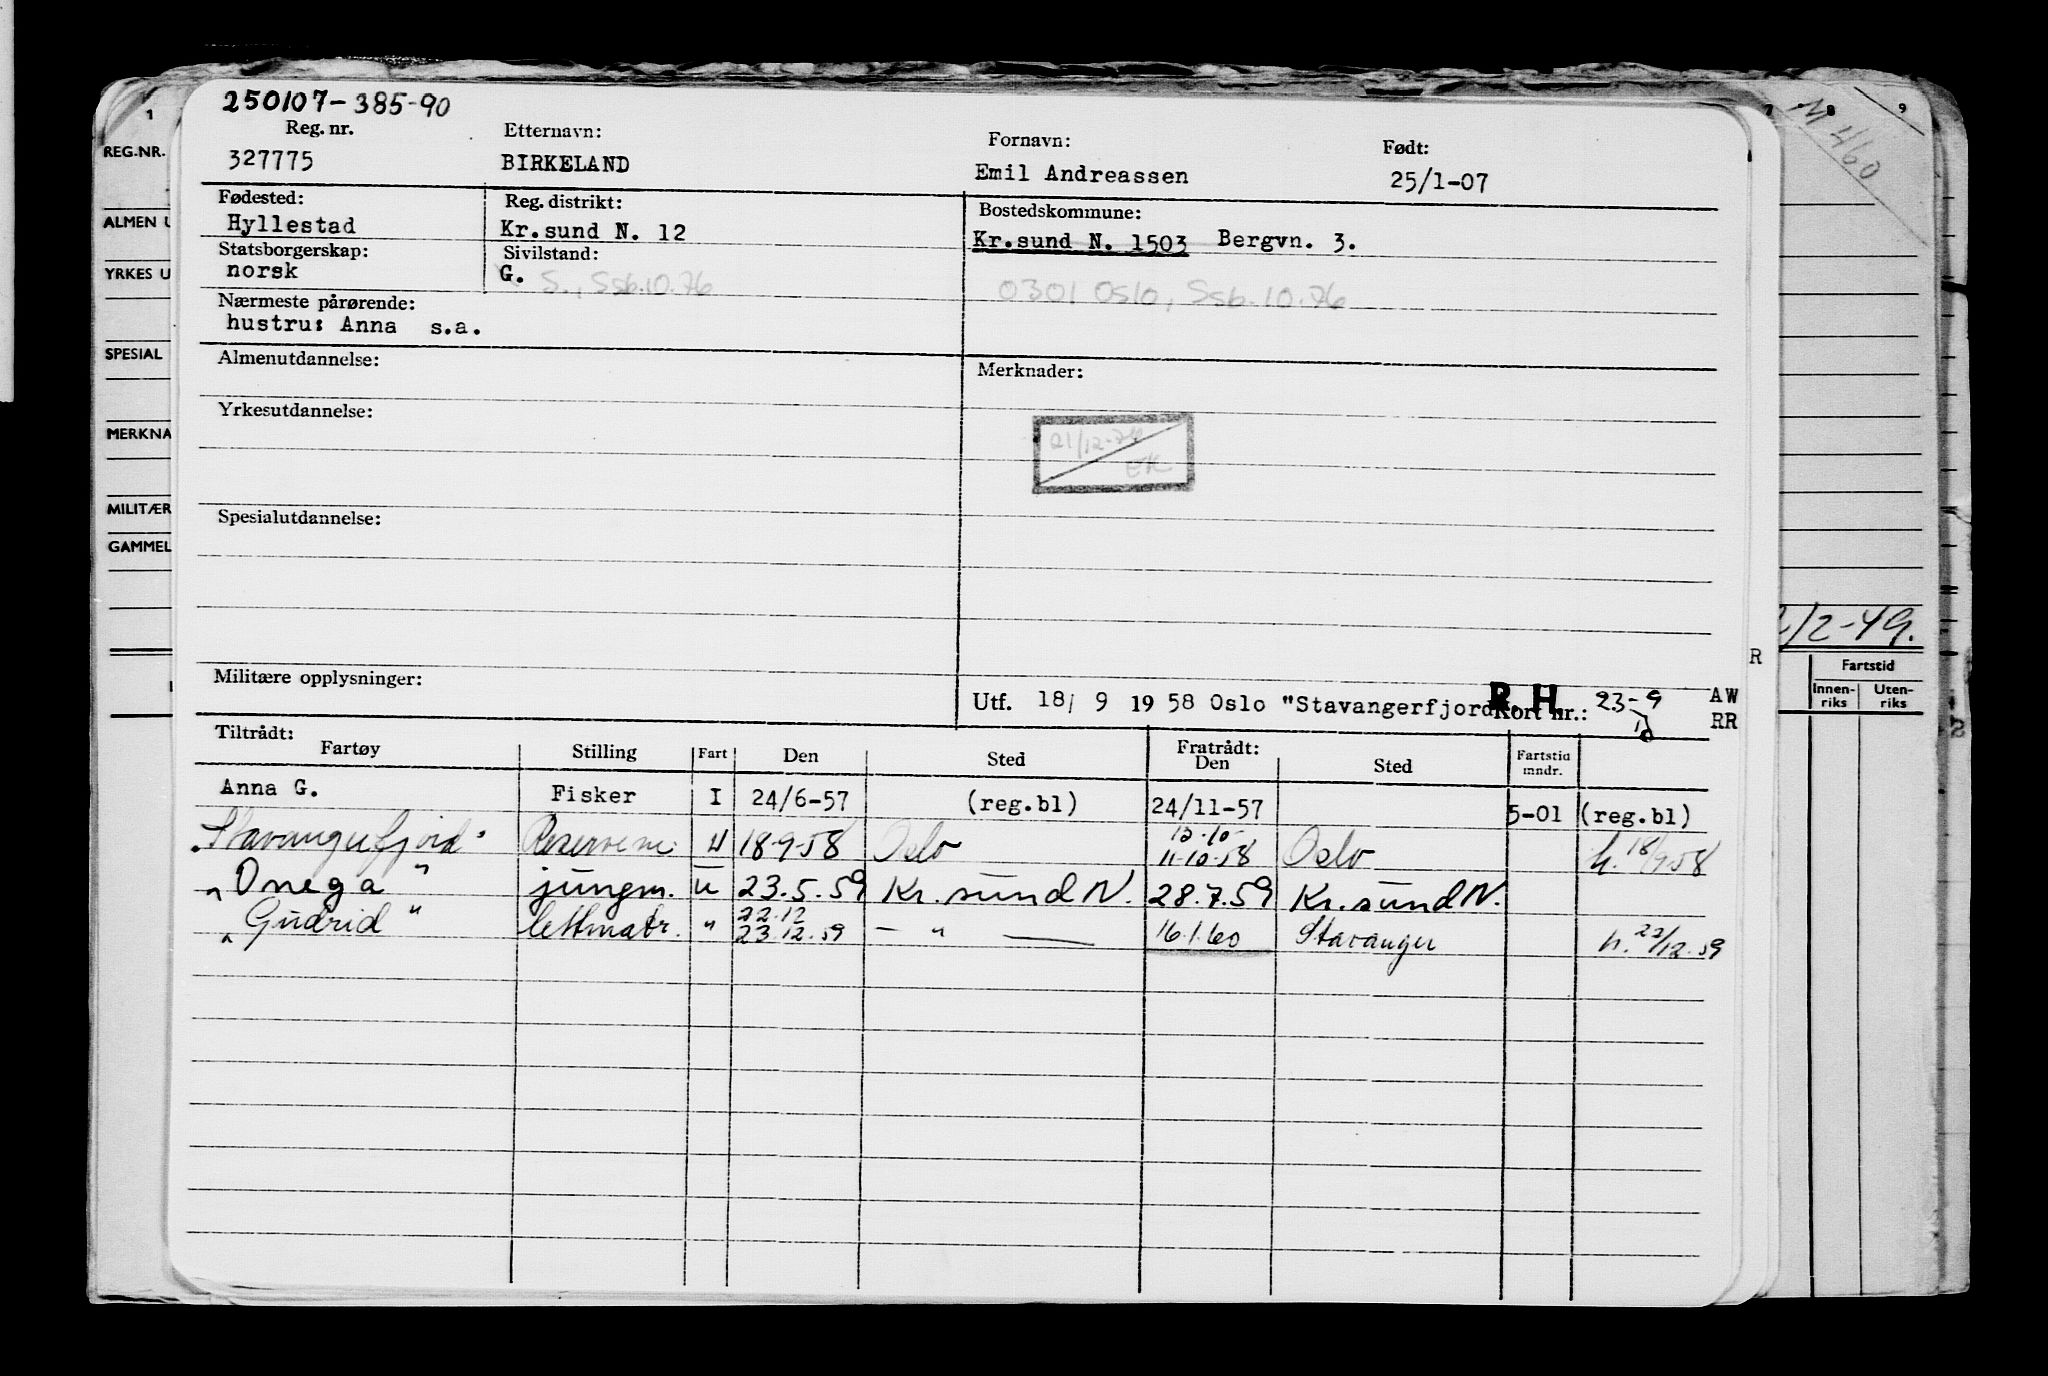 250107-385-90
Reg. nr. Etternavn: Fornavn: Født:
327775 BIRKELAND Emil Andreassen 25/1-07
Fødested: Reg. distrikt: Bostedskommune:
Hyllestad Kr.sund N. 12 Kr.sund N. 1503 Bergvn. 3.
Statsborgerskap: Sivilstand:
norsk G. S., Ssb.10.76 0301 Oslo, Ssb.10.76
Nærmeste pårørende:
hustru: Anna s.a.
Almenutdannelse: Merknader:
Yrkesutdannelse:
21/12-76
EK
Spesialutdannelse:
Militære opplysninger:
Utf. 18/ 9 19 58 Oslo "Stavangerfjord R. H. Kort nr.: 23-9
Tiltrådt: Fratrådt:
Fartøy Stilling Fart Den Sted Den Sted Fartstid mndr.
Anna G. Fisker I 24/6-57 (reg.bl) 24/11-57 5-01 (reg.bl)
"Stavangerfjord" U 18-9-58 Oslo 12-10- 11-10-58 Oslo h. 18/9-58
"Onega" jungm. U 23.5.59 Kr.sund N. 28.7.59 Kr.sund N.
"Gudrid" lettmatr. " 22.12 23.12.59 — " — 16.1.60 Stavanger h. 22/12.59
1
REG.NR.
ALMEN U
YRKES U
SPESIAL
MERKNA
MILITÆR
GAMMEL
7 8 9
M 460
/2-49.
R
Fartstid
Innen-
riks
Uten-
riks
A W
RR